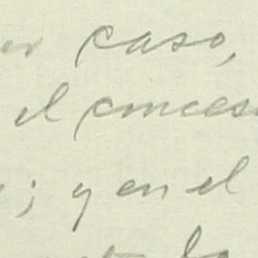 caso,
el conces
; y en el